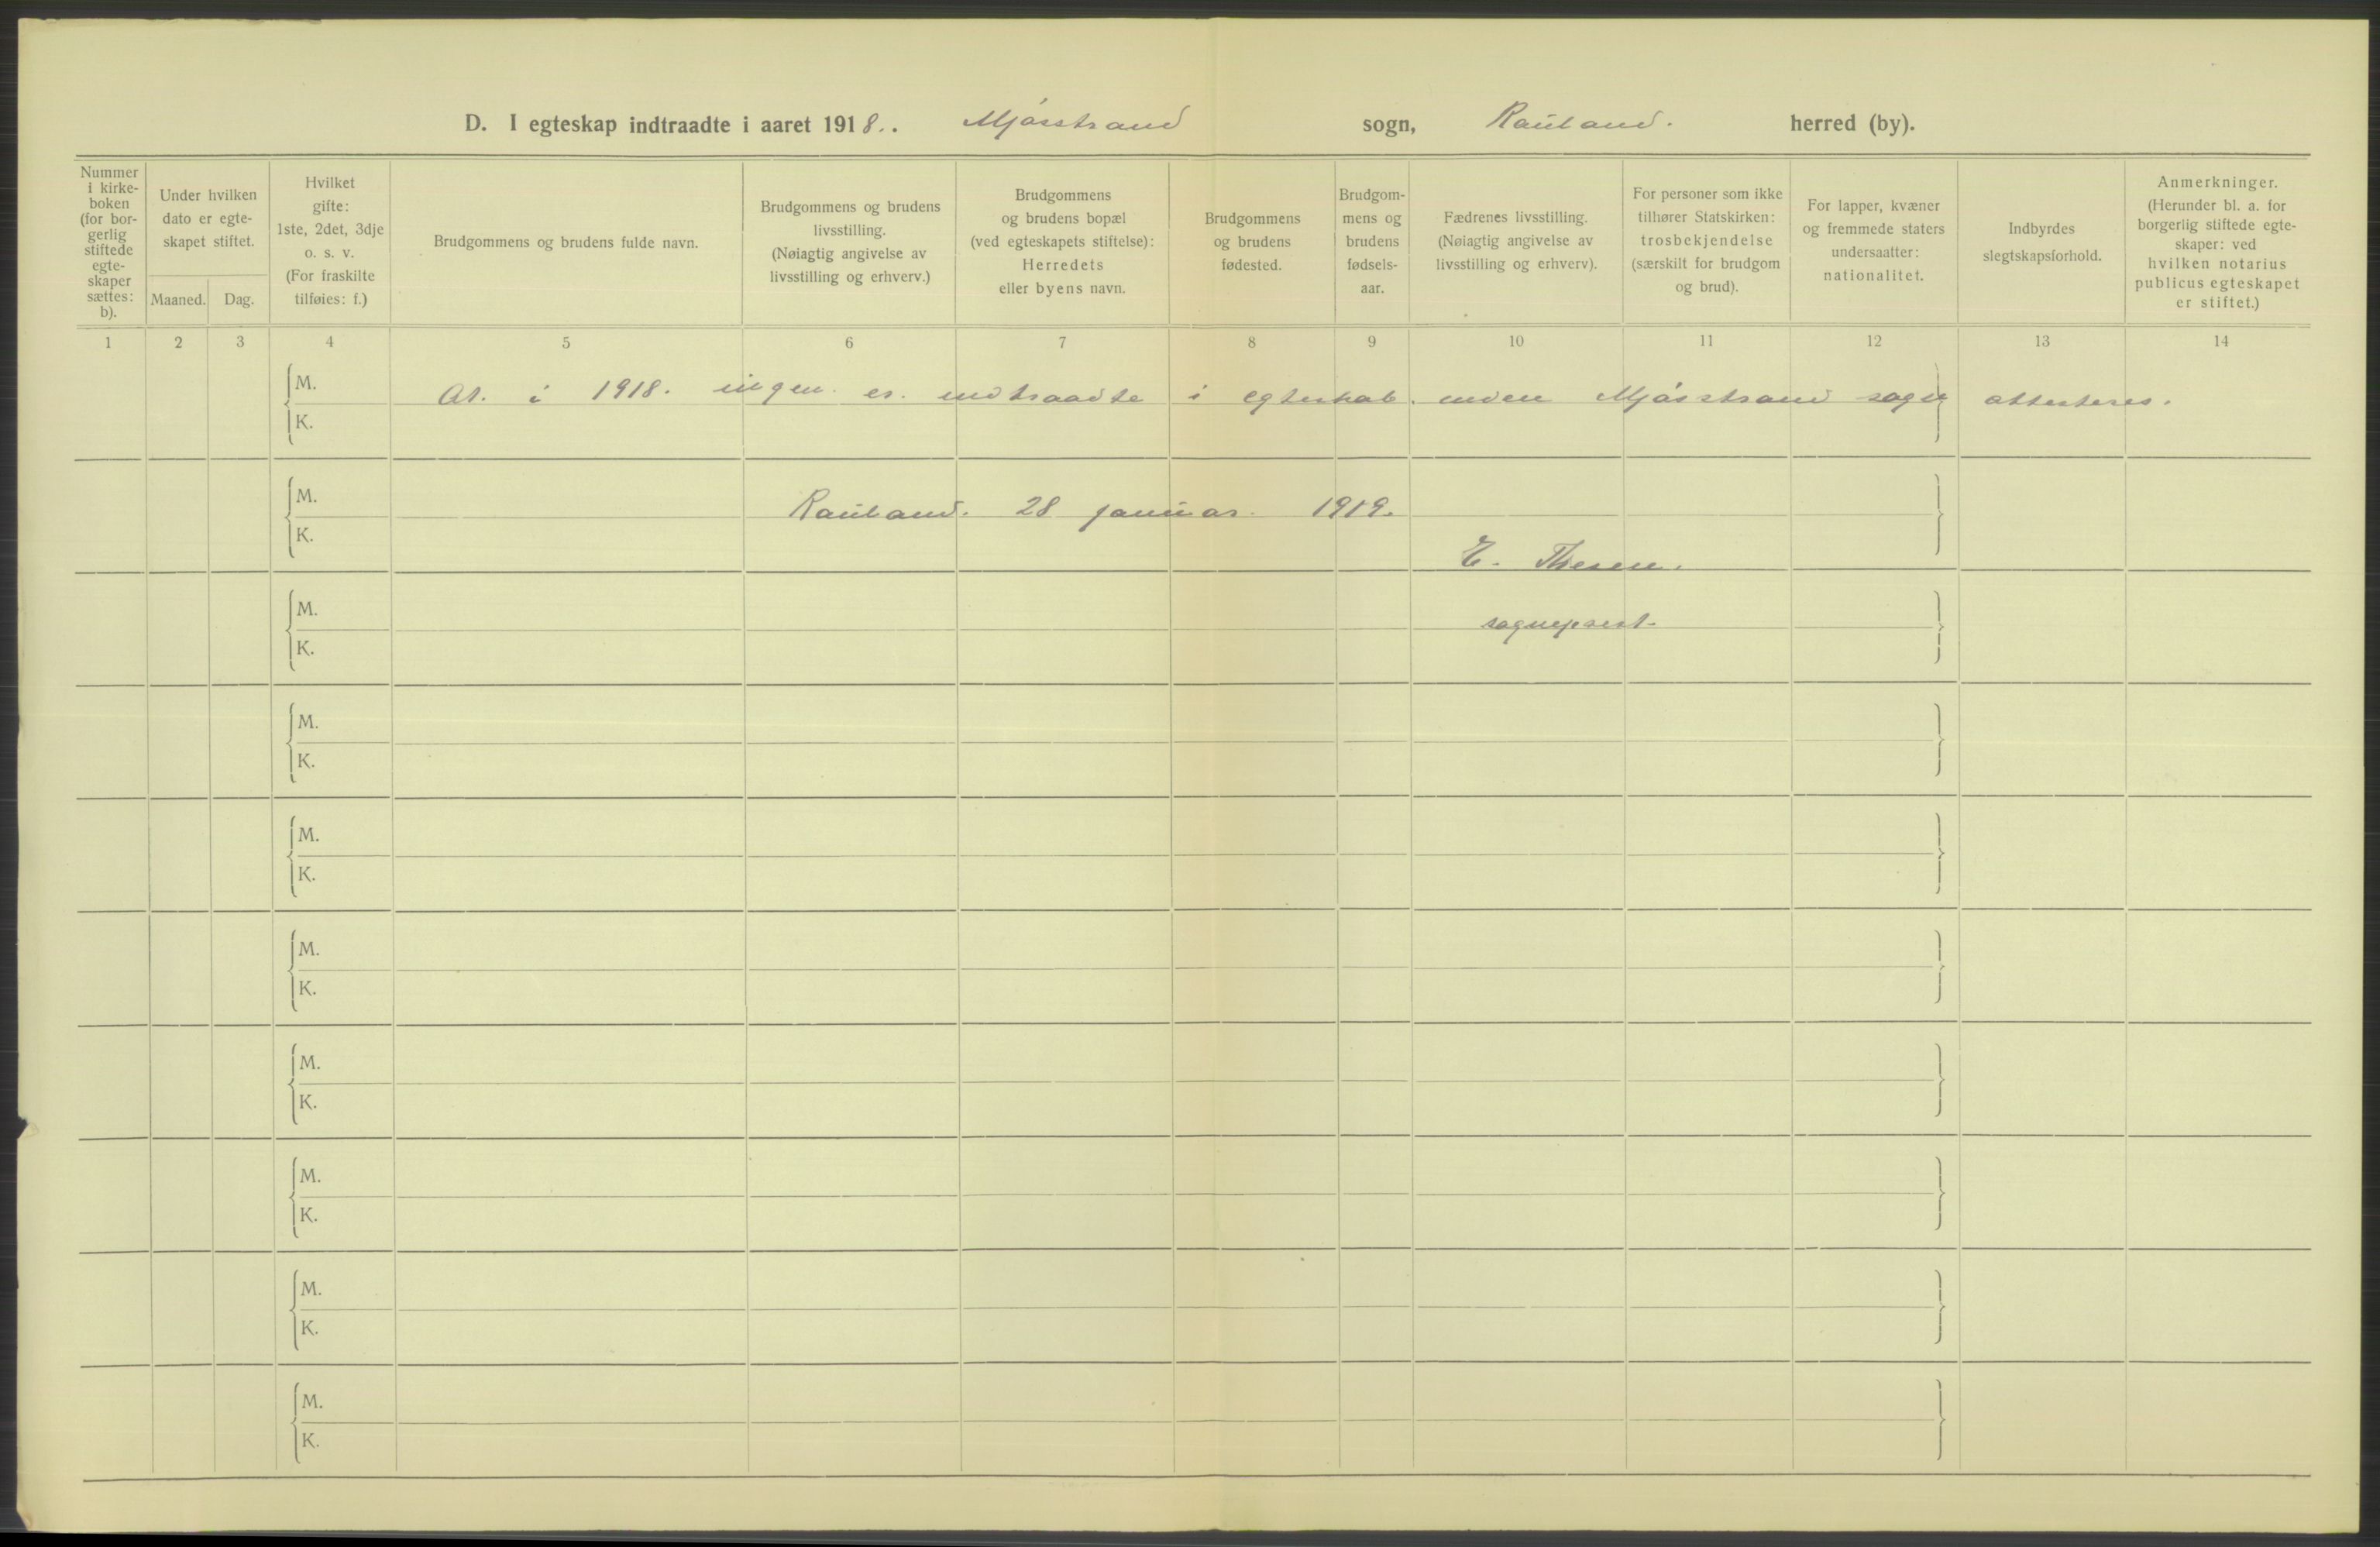 D. I egteskap indtraadte i aaret 1918. . Mjósstrand sogn, Rauland. herred (by).
Nummer i kirke- boken (for bor- gerlig stiftede egte- skaper sættes: b).
Under hvilken dato er egte- skapet stiftet.
Maaned. Dag.
Hvilket gifte: 1ste, 2det, 3dje o. s. v. (For fraskilte tilføies: f.)
Brudgommens og brudens fulde navn.
Brudgommens og brudens livsstilling. (Nøiagtig angivelse av livsstilling og erhverv.)
Brudgommens og brudens bopæl (ved egteskapets stiftelse): Herredets eller byens navn.
Brudgommens og brudens fødested.
Brudgom- mens og brudens fødsels- aar.
Fædrenes livsstilling. (Nøiagtig angivelse av livsstilling og erhverv).
For personer som ikke tilhører Statskirken: trosbekjendelse (særskilt for brudgom og brud).
For lapper, kvæner og fremmede staters undersaatter: nationalitet.
Indbyrdes slegtskapsforhold.
Anmerkninger. (Herunder bl. a. for borgerlig stiftede egte- skaper: ved hvilken notarius publicus egteskapet er stiftet.)
1 2 3 4 5 6 7 8 9 10 11 12 13 14
M.
At. i 1918. ingen. er. indtraadte i egteskab. inden Mjósstrand sogn attesteres.
K.
M.
Rauland. 28 januar. 1919.
K.
E. Thesen.
M.
sogneprest.
K.
M.
K.
M.
K.
M.
K.
M.
K.
M.
K.
M.
K.
M.
K.